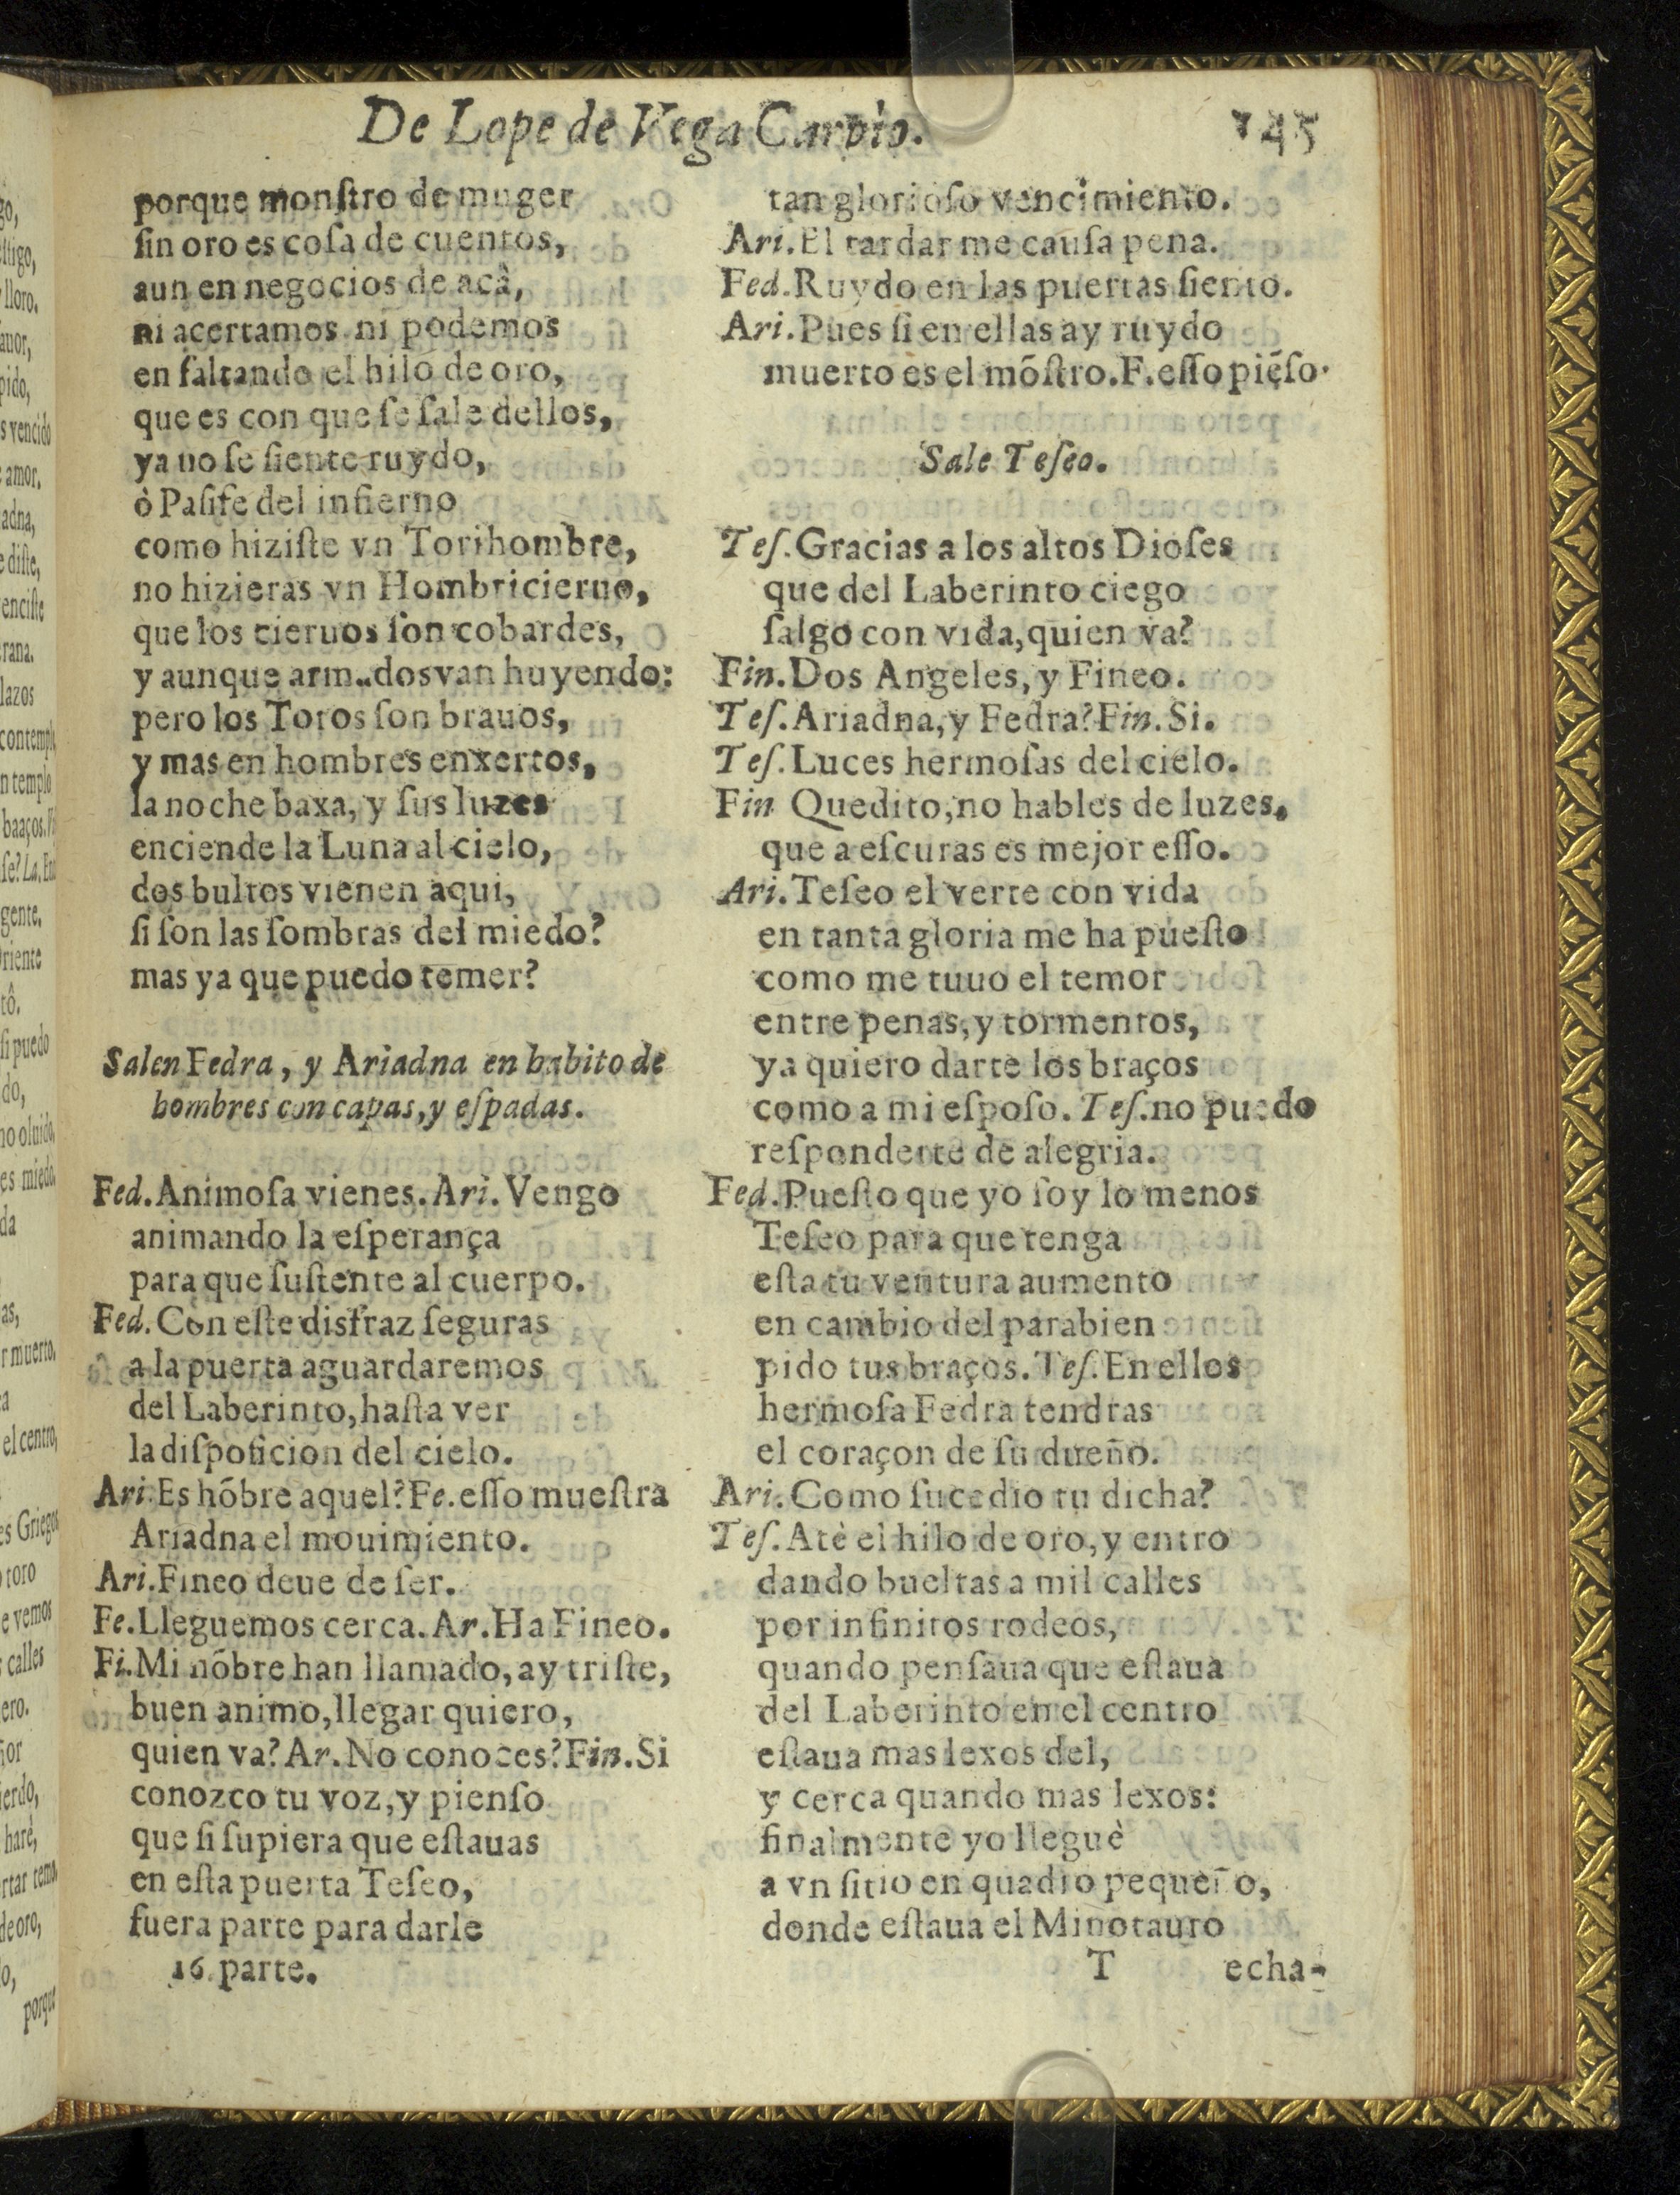 De Lope de Vega Carpio.
145
porque monſtro de muger
ſin oro es coſa de cuentos,
aun en negocios de acà,
ni acertamos ni podemos
en faltando el hilo de oro,
que es con que ſe ſale dellos,
ya no ſe ſiente ruydo,
ò Paſife del infierno
como hiziſte vn Torihombre,
no hizieras vn Hombricieruo,
que los cieruos ſon cobardes,
y aunque armados van huyendo:
pero los Toros ſon brauos,
y mas en hombres enxertos,
la noche baxa, y ſus luzes
enciende la Luna al cielo,
dos bultos vienen aqui,
ſi ſon las ſombras del miedo?
mas ya que puedo temer?
Salen Fedra, y Ariadna en habito de
hombres con capas, y eſpadas.
Fed. Animoſa vienes. Ari. Vengo
animando la eſperança
para que ſuſtente al cuerpo.
Fed. Con eſte disfraz ſeguras
a la puerta aguardaremos
del Laberinto, haſta ver
la diſpoſicion del cielo.
Ari. Es hõbre aquel? Fe. eſſo mueſtra
Ariadna el mouimiento.
Ari. Fineo deue de ſer.
Fe. Lleguemos cerca. Ar. Ha Fineo.
Fi. Mi nõbre han llamado, ay triſte,
buen animo, llegar quiero,
quien va? Ar. No conoces? Fin. Si
conozco tu voz, y pienſo
que ſi ſupiera que eſtauas
en eſta puerta Teſeo,
fuera parte para darle
16. parte.
tan glorioſo vencimiento.
Ari. El tardar me cauſa pena.
Fed. Ruydo en las puertas ſiento.
Ari. Pues ſi en ellas ay ruydo
muerto es el mõſtro. F. eſſo piẽſo.
Sale Teſeo.
Teſ. Gracias a los altos Dioſes
que del Laberinto ciego
ſalgo con vida, quien va?
Fin. Dos Angeles, y Fineo.
Teſ. Ariadna, y Fedra? Fin. Si.
Teſ. Luces hermoſas del cielo.
Fin Quedito, no hables de luzes,
que a eſcuras es mejor eſſo.
Ari. Teſeo el verte con vida
en tanta gloria me ha pueſto
como me tuuo el temor
entre penas, y tormentos,
ya quiero darte los braços
como a mi eſpoſo. Teſ. no puedo
reſponderte de alegria.
Fed. Pueſto que yo ſoy lo menos
Teſeo para que tenga
eſta tu ventura aumento
en cambio del parabien
pido tus braços. Teſ. En ellos
hermoſa Fedra tendras
el coraçon de ſu dueño.
Ari. Como ſucedio tu dicha?
Teſ. Atè el hilo de oro, y entro
dando bueltas a mil calles
por infinitos rodeos,
quando penſaua que eſtaua
del Laberinto en el centro
eſtaua mas lexos del,
y cerca quando mas lexos:
finalmente yo lleguè
a vn ſitio en quadro pequeño,
donde eſtaua el Minotauro
T echa-